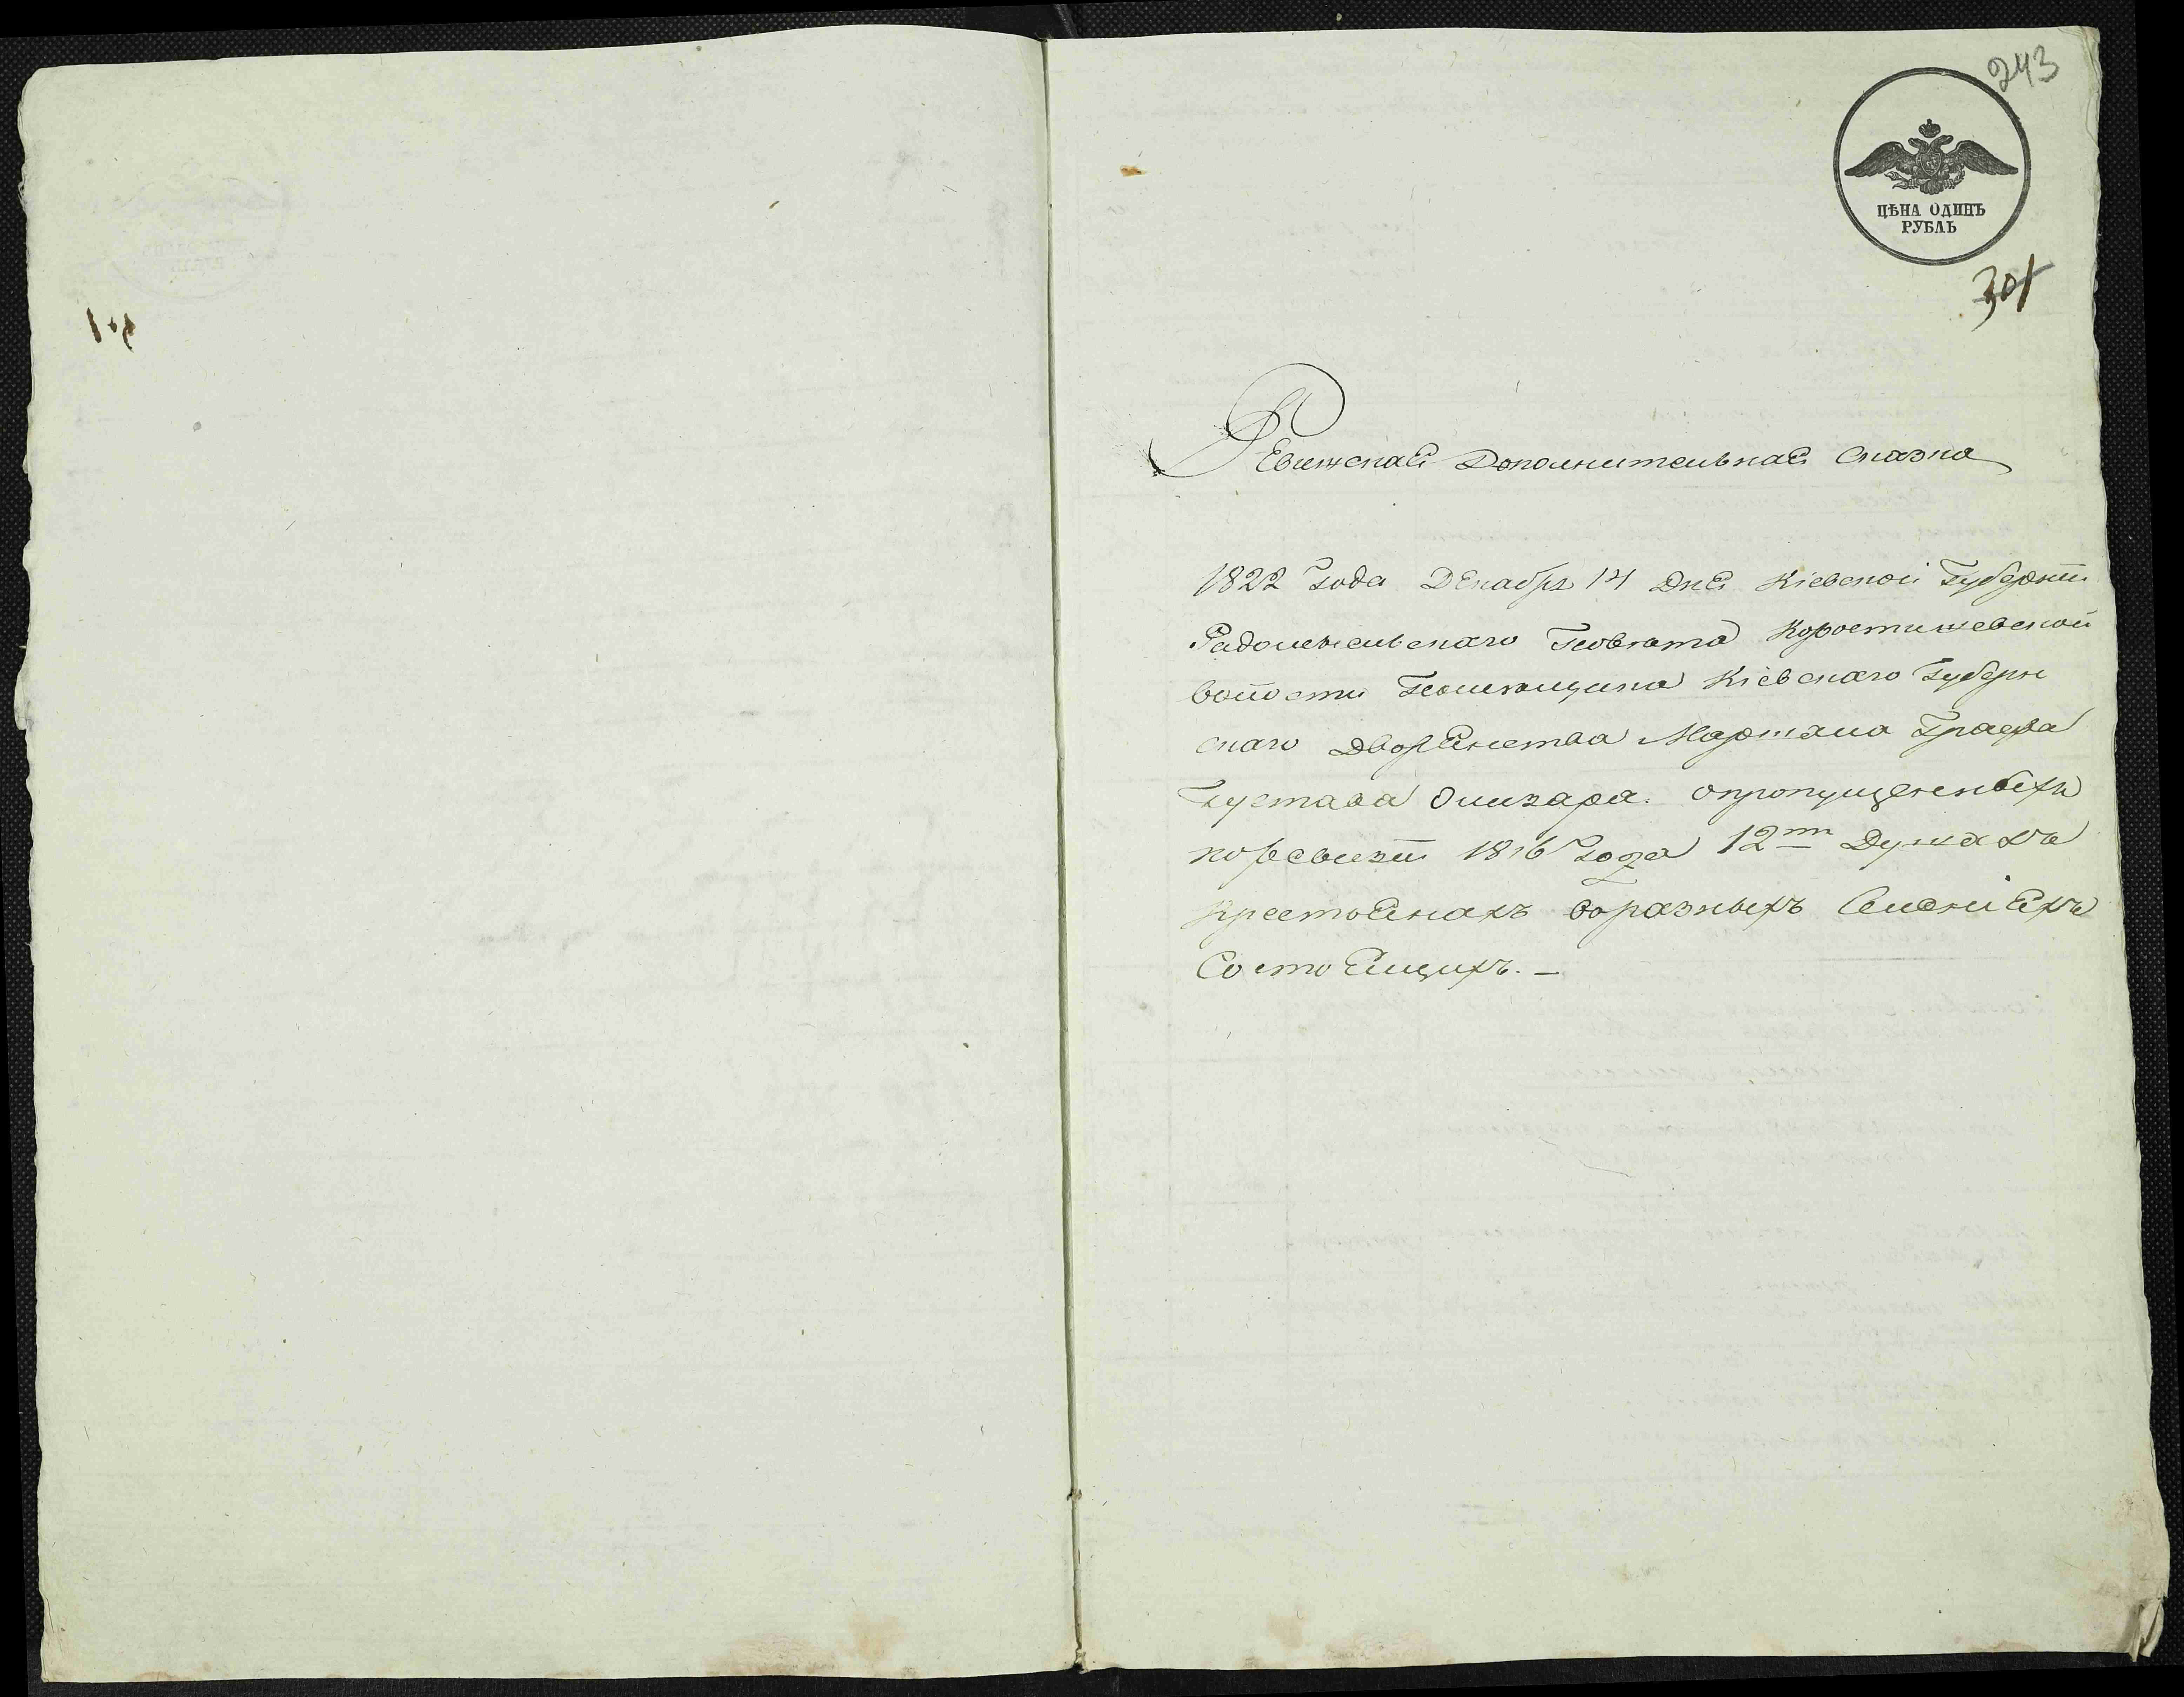 243
ЦѢНА ОДИНЪ
РУБЛЬ
301
Ревижская Дополнительная Сказка
1822 Года Декабря 14 Дня Кіевской Губерніи
Радомысльскаго Повѣта Коростишевской
волости Помѣщика Кіевскаго Губерн
скаго Дворянства Маршала Графа
Густава Олизара. опропущенныхъ
поревизіи 1816 года 12ти Душахъ
Крестьянахъ воразныхъ Селеніяхъ
Состоящихъ. —